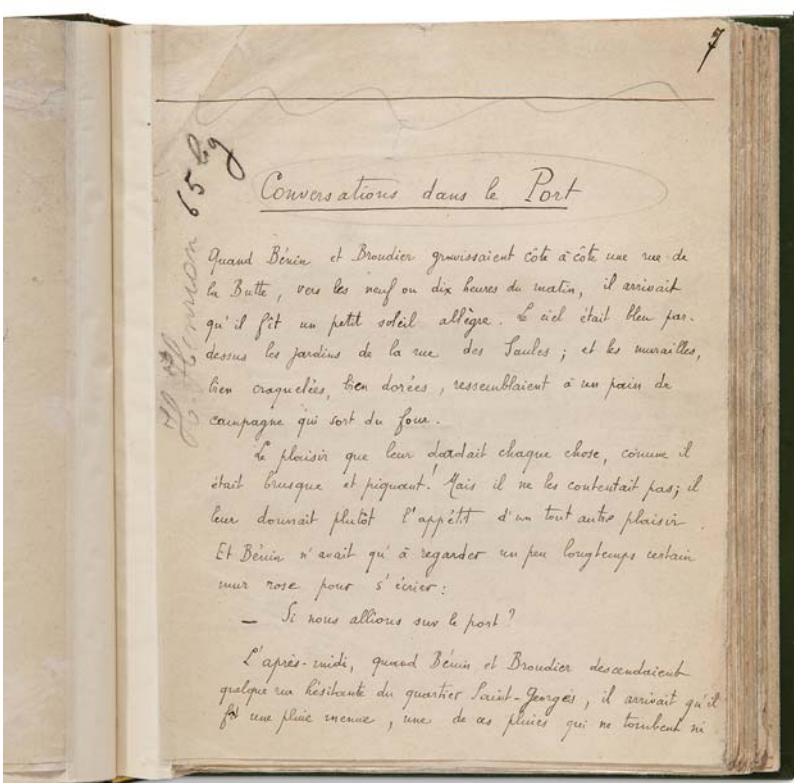 7
Conversations dans le Port
65 kg
Quand Bénin et Broudier gravissaient côte à côte une rue de
la Butte, vers les neuf ou dix heures du matin, il arrivait
qu'il fît un petit soleil allègre. Le ciel était bleu par-
dessus les jardins de la rue des Saules ; et les murailles,
bien craquelées, bien dorées, ressemblaient à un pain de
campagne qui sort du four.
Le plaisir que leur dardait chaque chose, comme il
était brusque et piquant! Mais il ne les contentait pas; il
leur donnait plutôt l'appétit d'un tout autre plaisir.
Et Bénin n'avait qu'à regarder un peu longtemps certain
mur rose pour s'écrier :
— Si nous allions sur le port ?
L'après-midi, quand Bénin et Broudier descendaient
quelque rue hésitante du quartier Saint-Georges, il arrivait qu'il
fît une pluie menue, une de ces pluies qui ne tombent ni